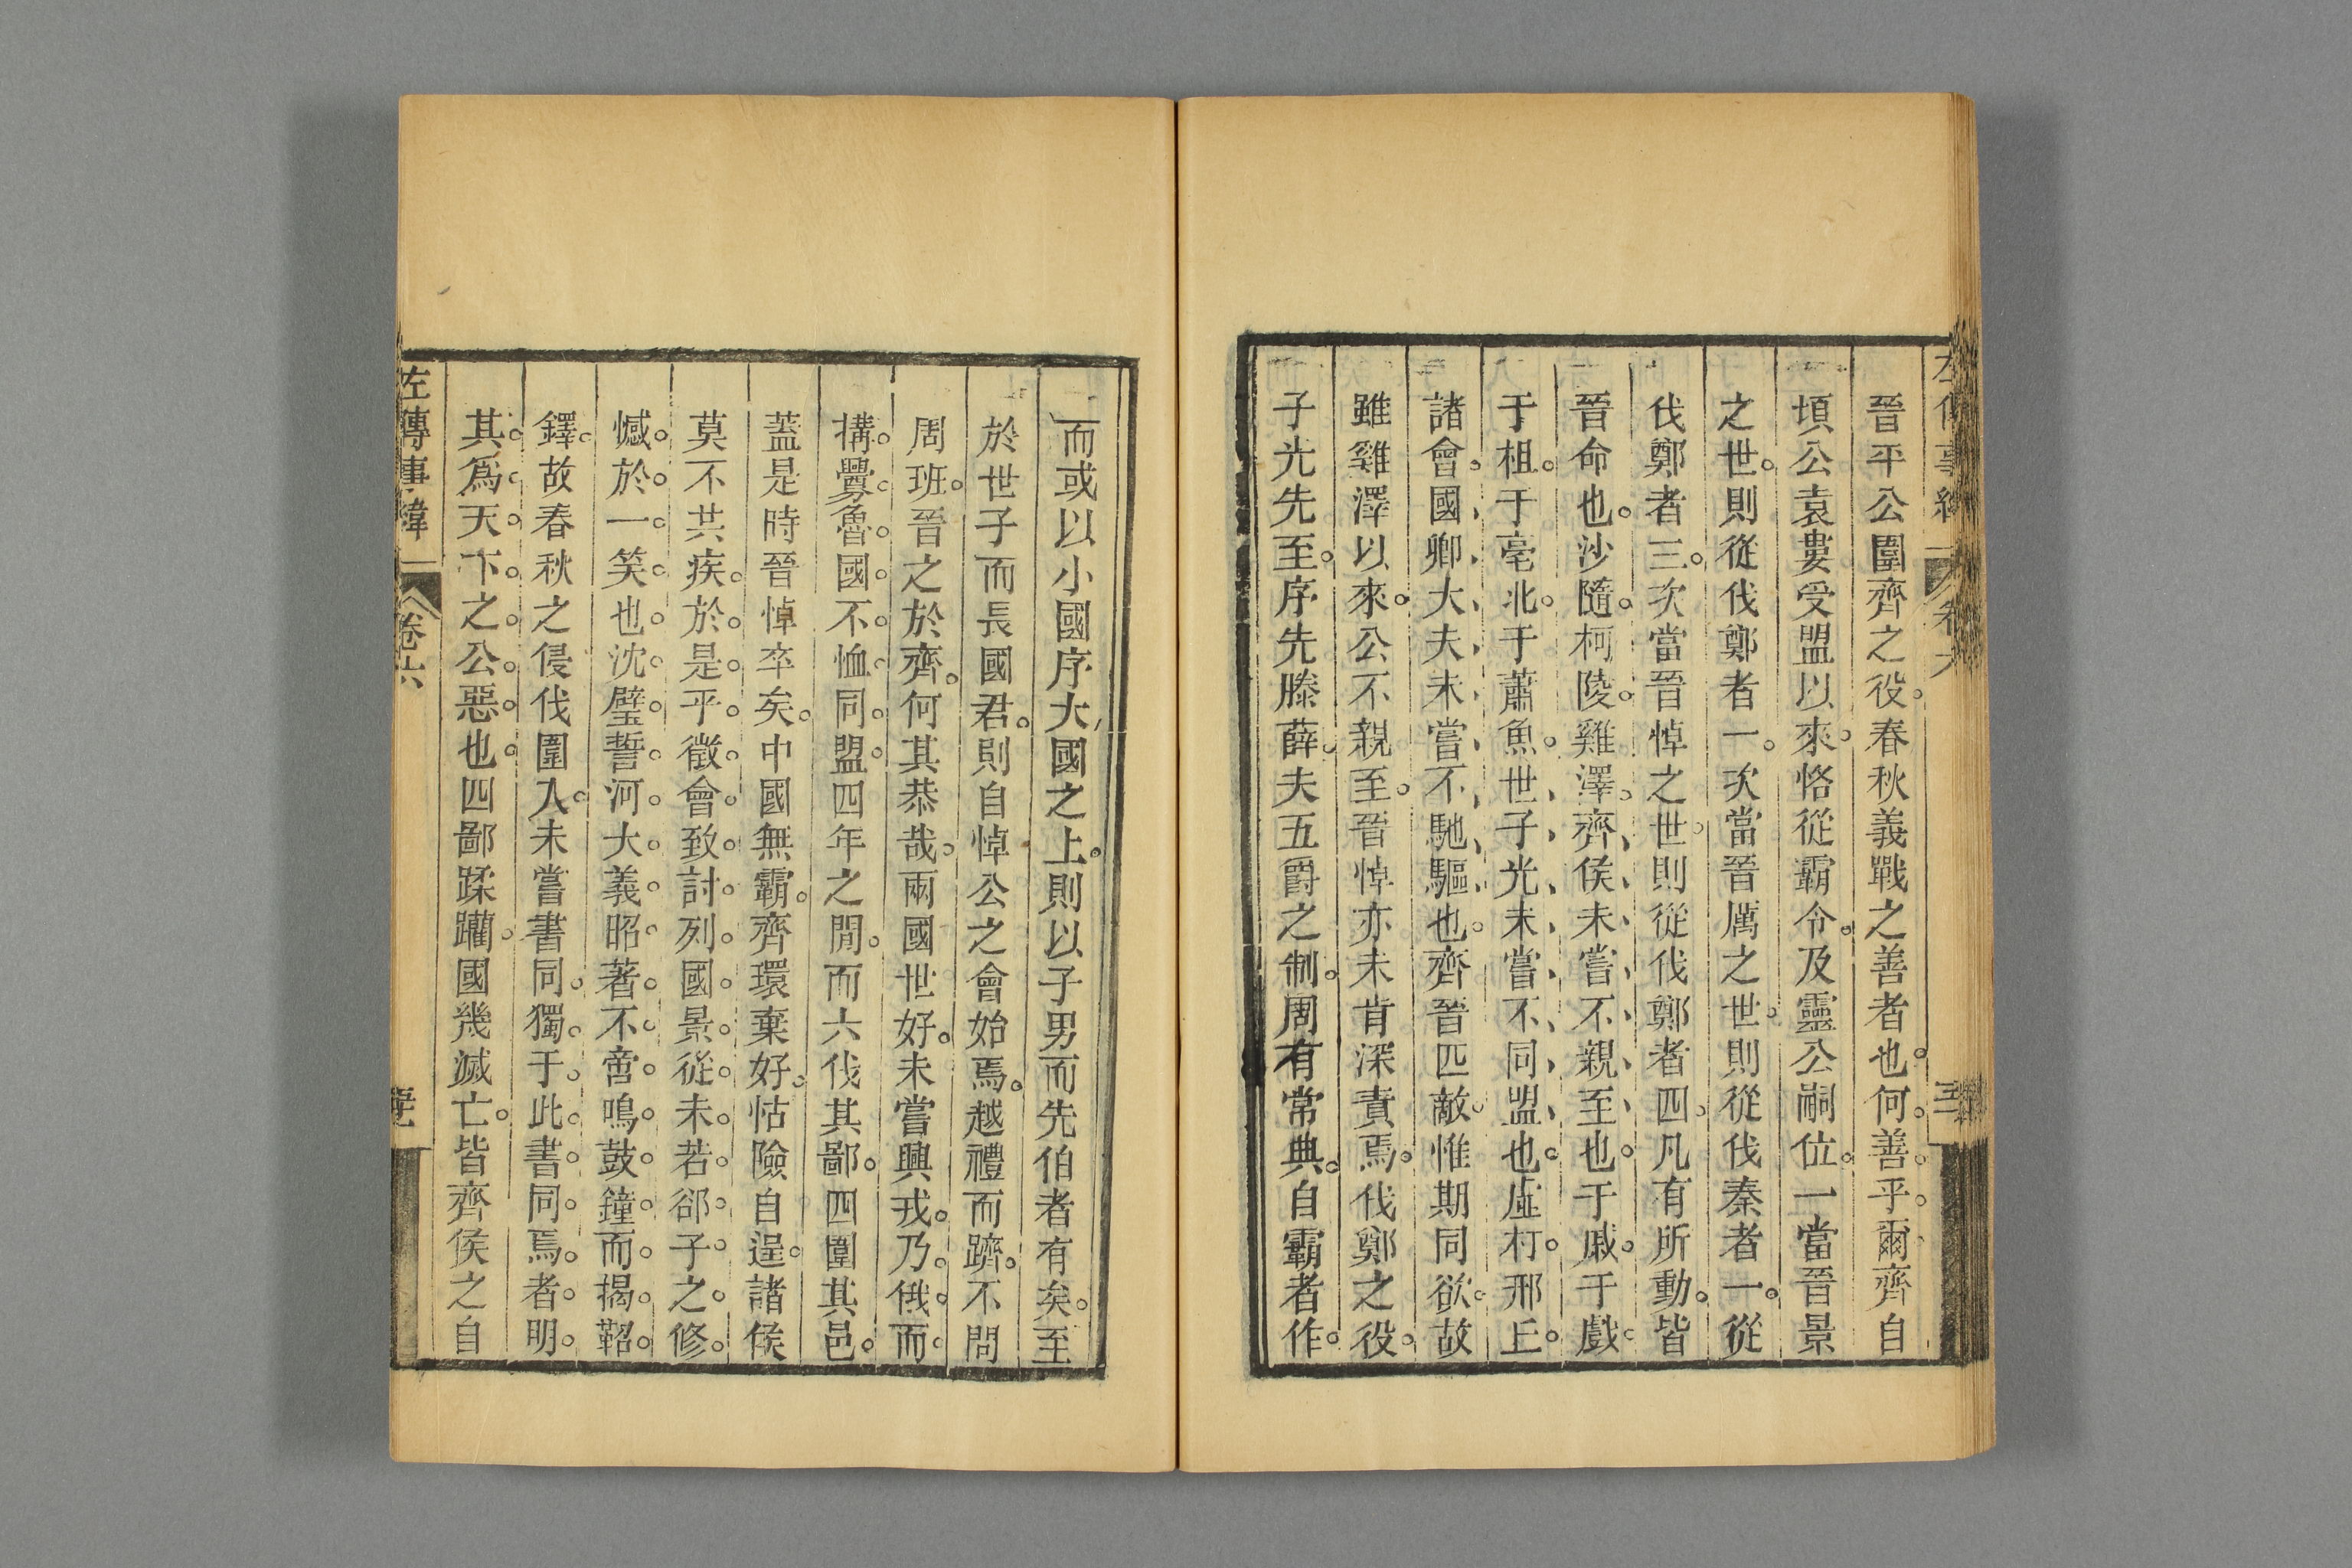 晉平公圍齊之役。春秋義戰之善者也。何。善。乎。爾。齊自
頃公袁婁受盟以來。恪從霸令。及靈公嗣位。一當晉景
之世。則從伐鄭者一。次當晉厲之世。則從伐秦者一。從
伐鄭者三。次當晉悼之世。則從伐鄭者四。凡有所動。皆
晉命也。沙隨。柯陵。雞澤。齊侯未嘗不親至也。于戚。于戲
于柤。于亳北。于蕭魚。世子光未嘗不同盟也。虛朾。邢丘。
諸會。國卿大夫未嘗不馳驅也。齊晉匹敵。惟期同欲。故
雖雞澤以來。公不親至。晉悼亦未肯深責焉。伐鄭之役。
子光先至。序先滕薛。夫五爵之制。周有常典。自霸者作。
而或以小國序大國之上。則以子男而先伯者有矣。至
於世子而長國君。則自悼公之會始焉。越禮而躋。不問
周班。晉之於齊。何其恭哉。兩國世好。未嘗興戎。乃。俄。而。
搆。釁。魯。國。不。恤。同。盟。四年之閒。而六伐其鄙。四圍其邑。
蓋是時晉悼卒矣。中國無霸。齊環棄好。怙險自逞。諸侯
莫不共疾。於。是。乎。徵。會。致。討。列。國。景。從。未。若。郤。子。之。修。
憾。於。一。笑。也。沈。璧。誓。河。大。義。昭。著。不。啻。鳴。鼓。鐘。而。揭。鞀。
鐸。故春秋之侵伐圍入。未嘗書同。獨。于。此。書。同。焉。者。明。
其。爲。天。下。之。公。惡。也。四鄙蹂躪。國幾滅亡。皆齊侯之自
左傳事緯 卷六